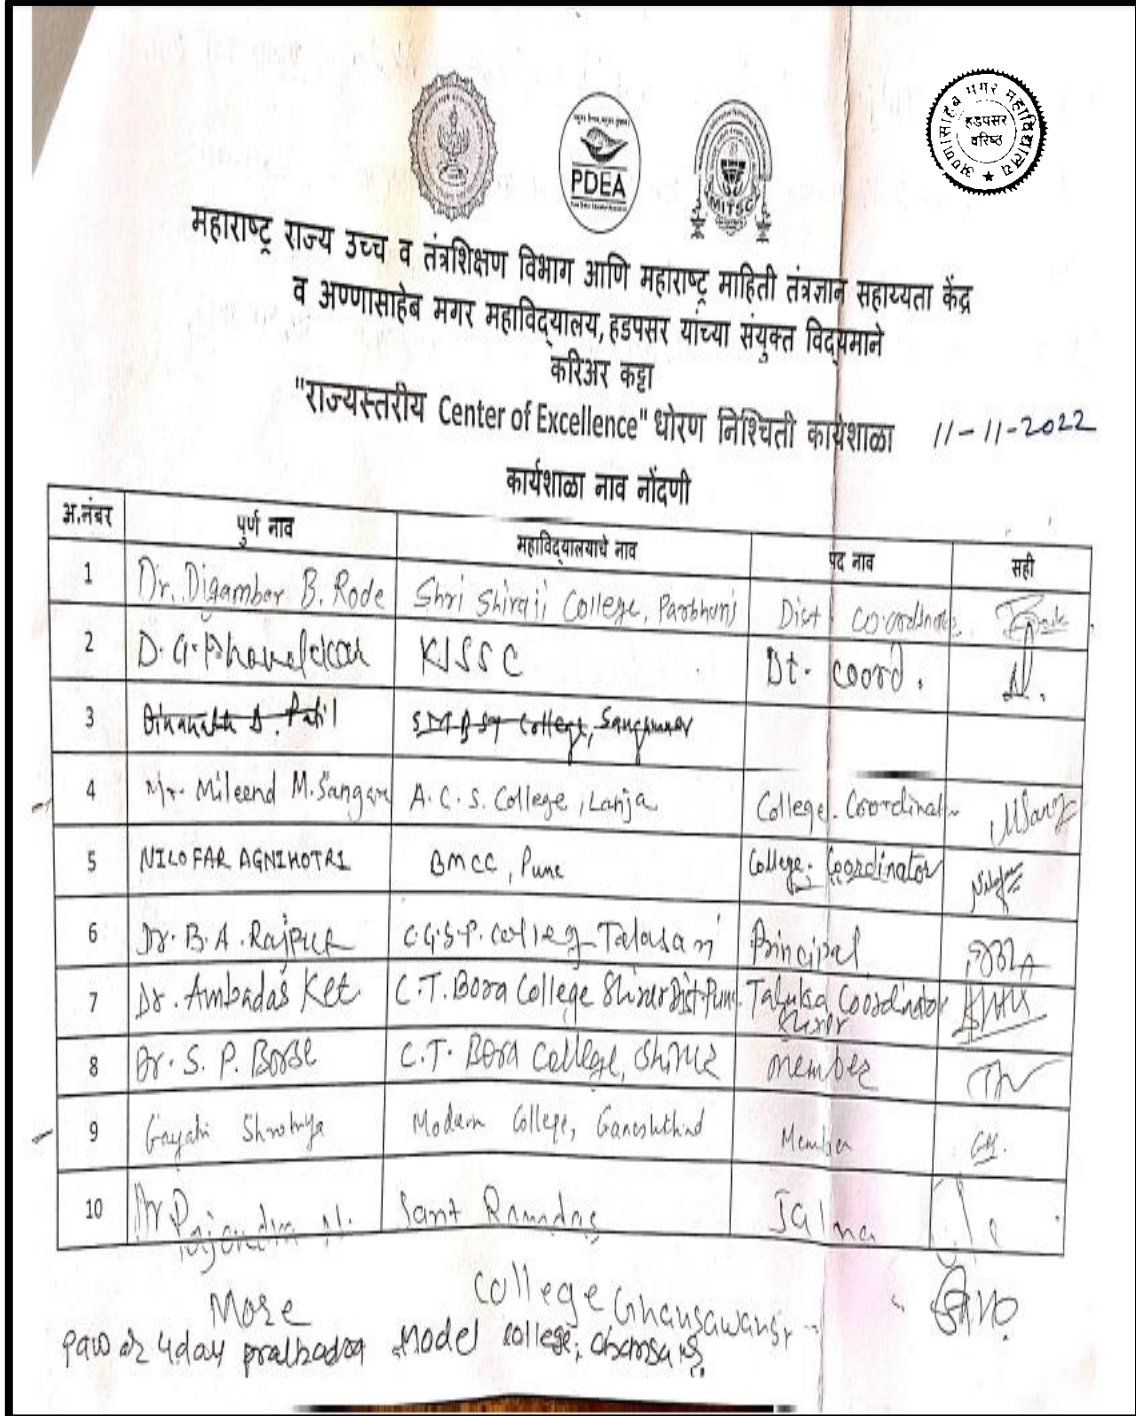 PDEA
MITSC
अण्णासाहेब मगर महाविद्यालय
हडपसर
वरिष्ठ
महाराष्ट्र राज्य उच्च व तंत्रशिक्षण विभाग आणि महाराष्ट्र माहिती तंत्रज्ञान सहाय्यता केंद्र
व अण्णासाहेब मगर महाविद्यालय, हडपसर यांच्या संयुक्त विद्यमाने
करिअर कट्टा
"राज्यस्तरीय Center of Excellence" धोरण निश्चिती कार्यशाळा 11-11-2022
कार्यशाळा नाव नोंदणी
अ.नंबर पुर्ण नाव महाविद्यालयाचे नाव पद नाव सही
1 Dr. Digambar B. Rode Shri Shivaji College, Parbhani Dist coordinator
2 D. G. KJSSC Dt. coord.
3 D. Patil College, Sangamner
4 Mr. Mileend M. Sangare A.C.S. College, Lanja College Coordinator
5 NILOFAR AGNIHOTRI BMCC, Pune College Coordinator
6 Dr. B.A. Rajput C.G.S.P. College Talasari Principal
7 Dr. Ambadas Ket C.T. Bora College Shirur Dist-Pune Taluka Coordinator
Shirur
8 Dr. S. P. Borse C.T. Bora College, Shirur member
9 Gayatri Modern College, Ganeshkhind Member
10 Dr Rajendra N. Sant Ramdas Jalna
More College Ghansawangi
pawar uday pralhadrao Model college,